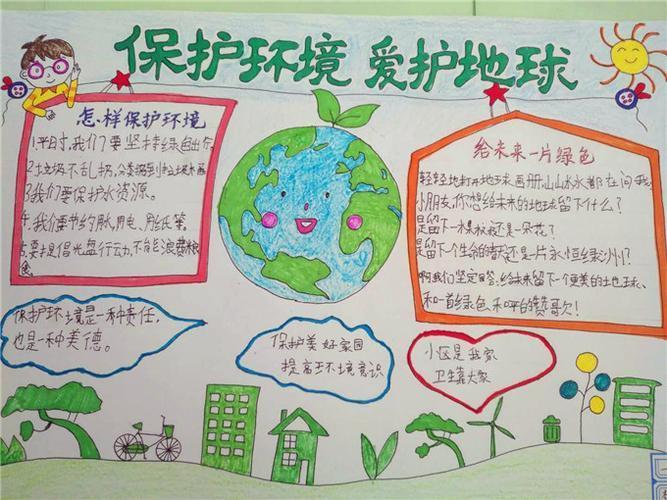 保护环境 爱护地球
怎样保护环境
1.平时,我们要坚持绿色出
2.垃圾不乱扔,分类
3.我们要保护水资源。
4.我们要节约用水,用电、用纸等。
5.要提倡光盘行动,不能浪费粮
食
给未来一片绿色
轻轻地打开地球画册,山山水水都在问我
小朋友,你想给未来的地球留下什么?
是留下一棵 还是一朵花?
是留下个生命的 还是一片永恒绿洲?
啊我们坚定回答:给未来留下一个更美的地球、
和一首绿色、和平的赞哥欠!
保护环境是一种责任,
也是一种美德。
保护美好家园
提高环境意识
小区是我家
卫生靠大家